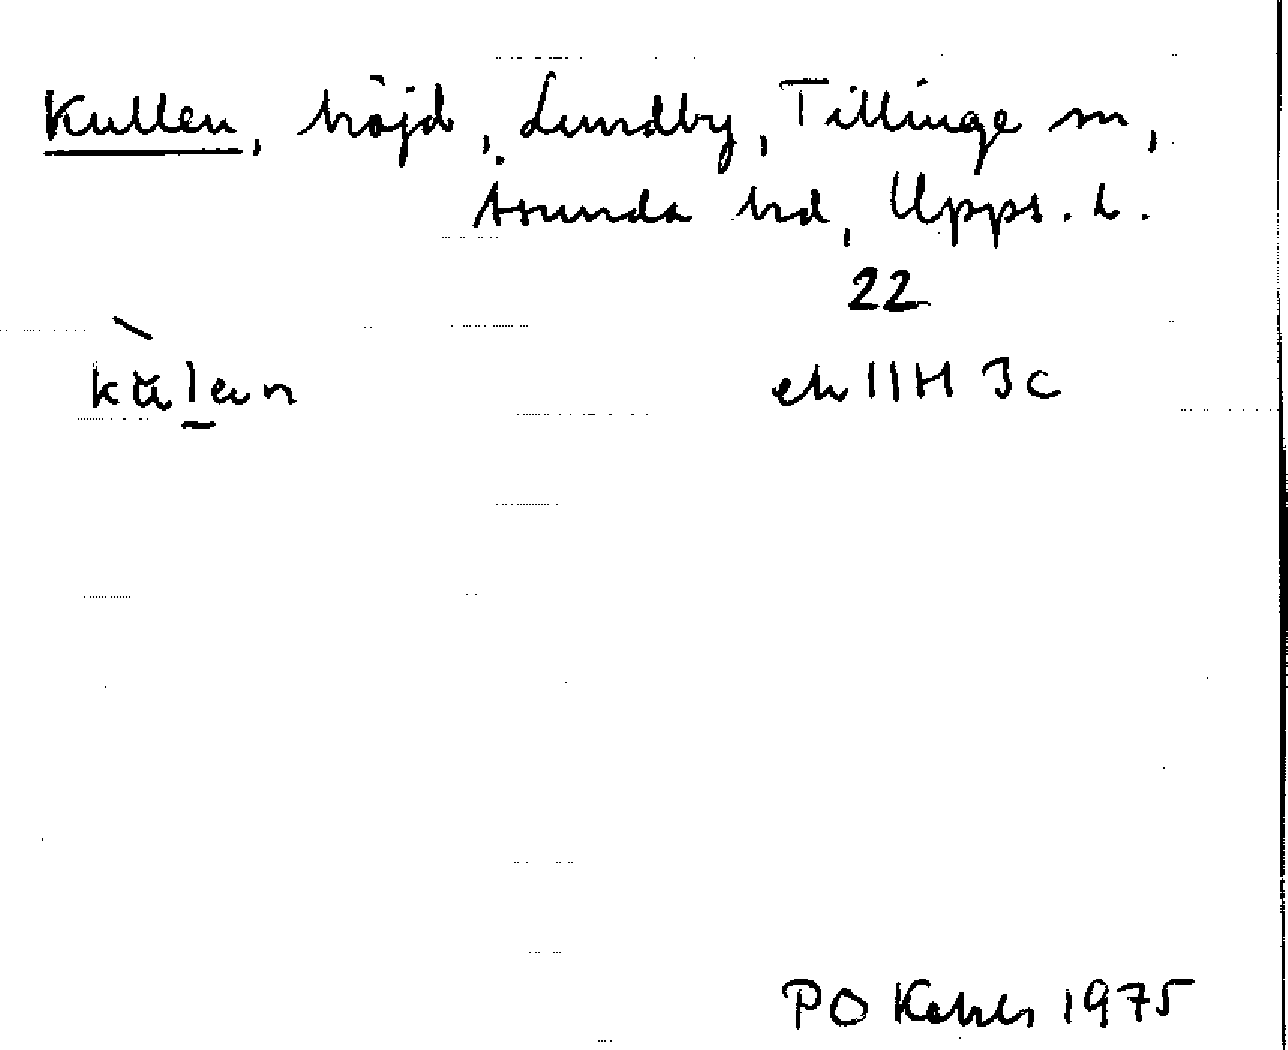 Kullen, höjd, Lundby, Tillinge sn,
Åsunda hd, Upps. l.
22
kùl̲en
ek 11H 3c
PO 1975